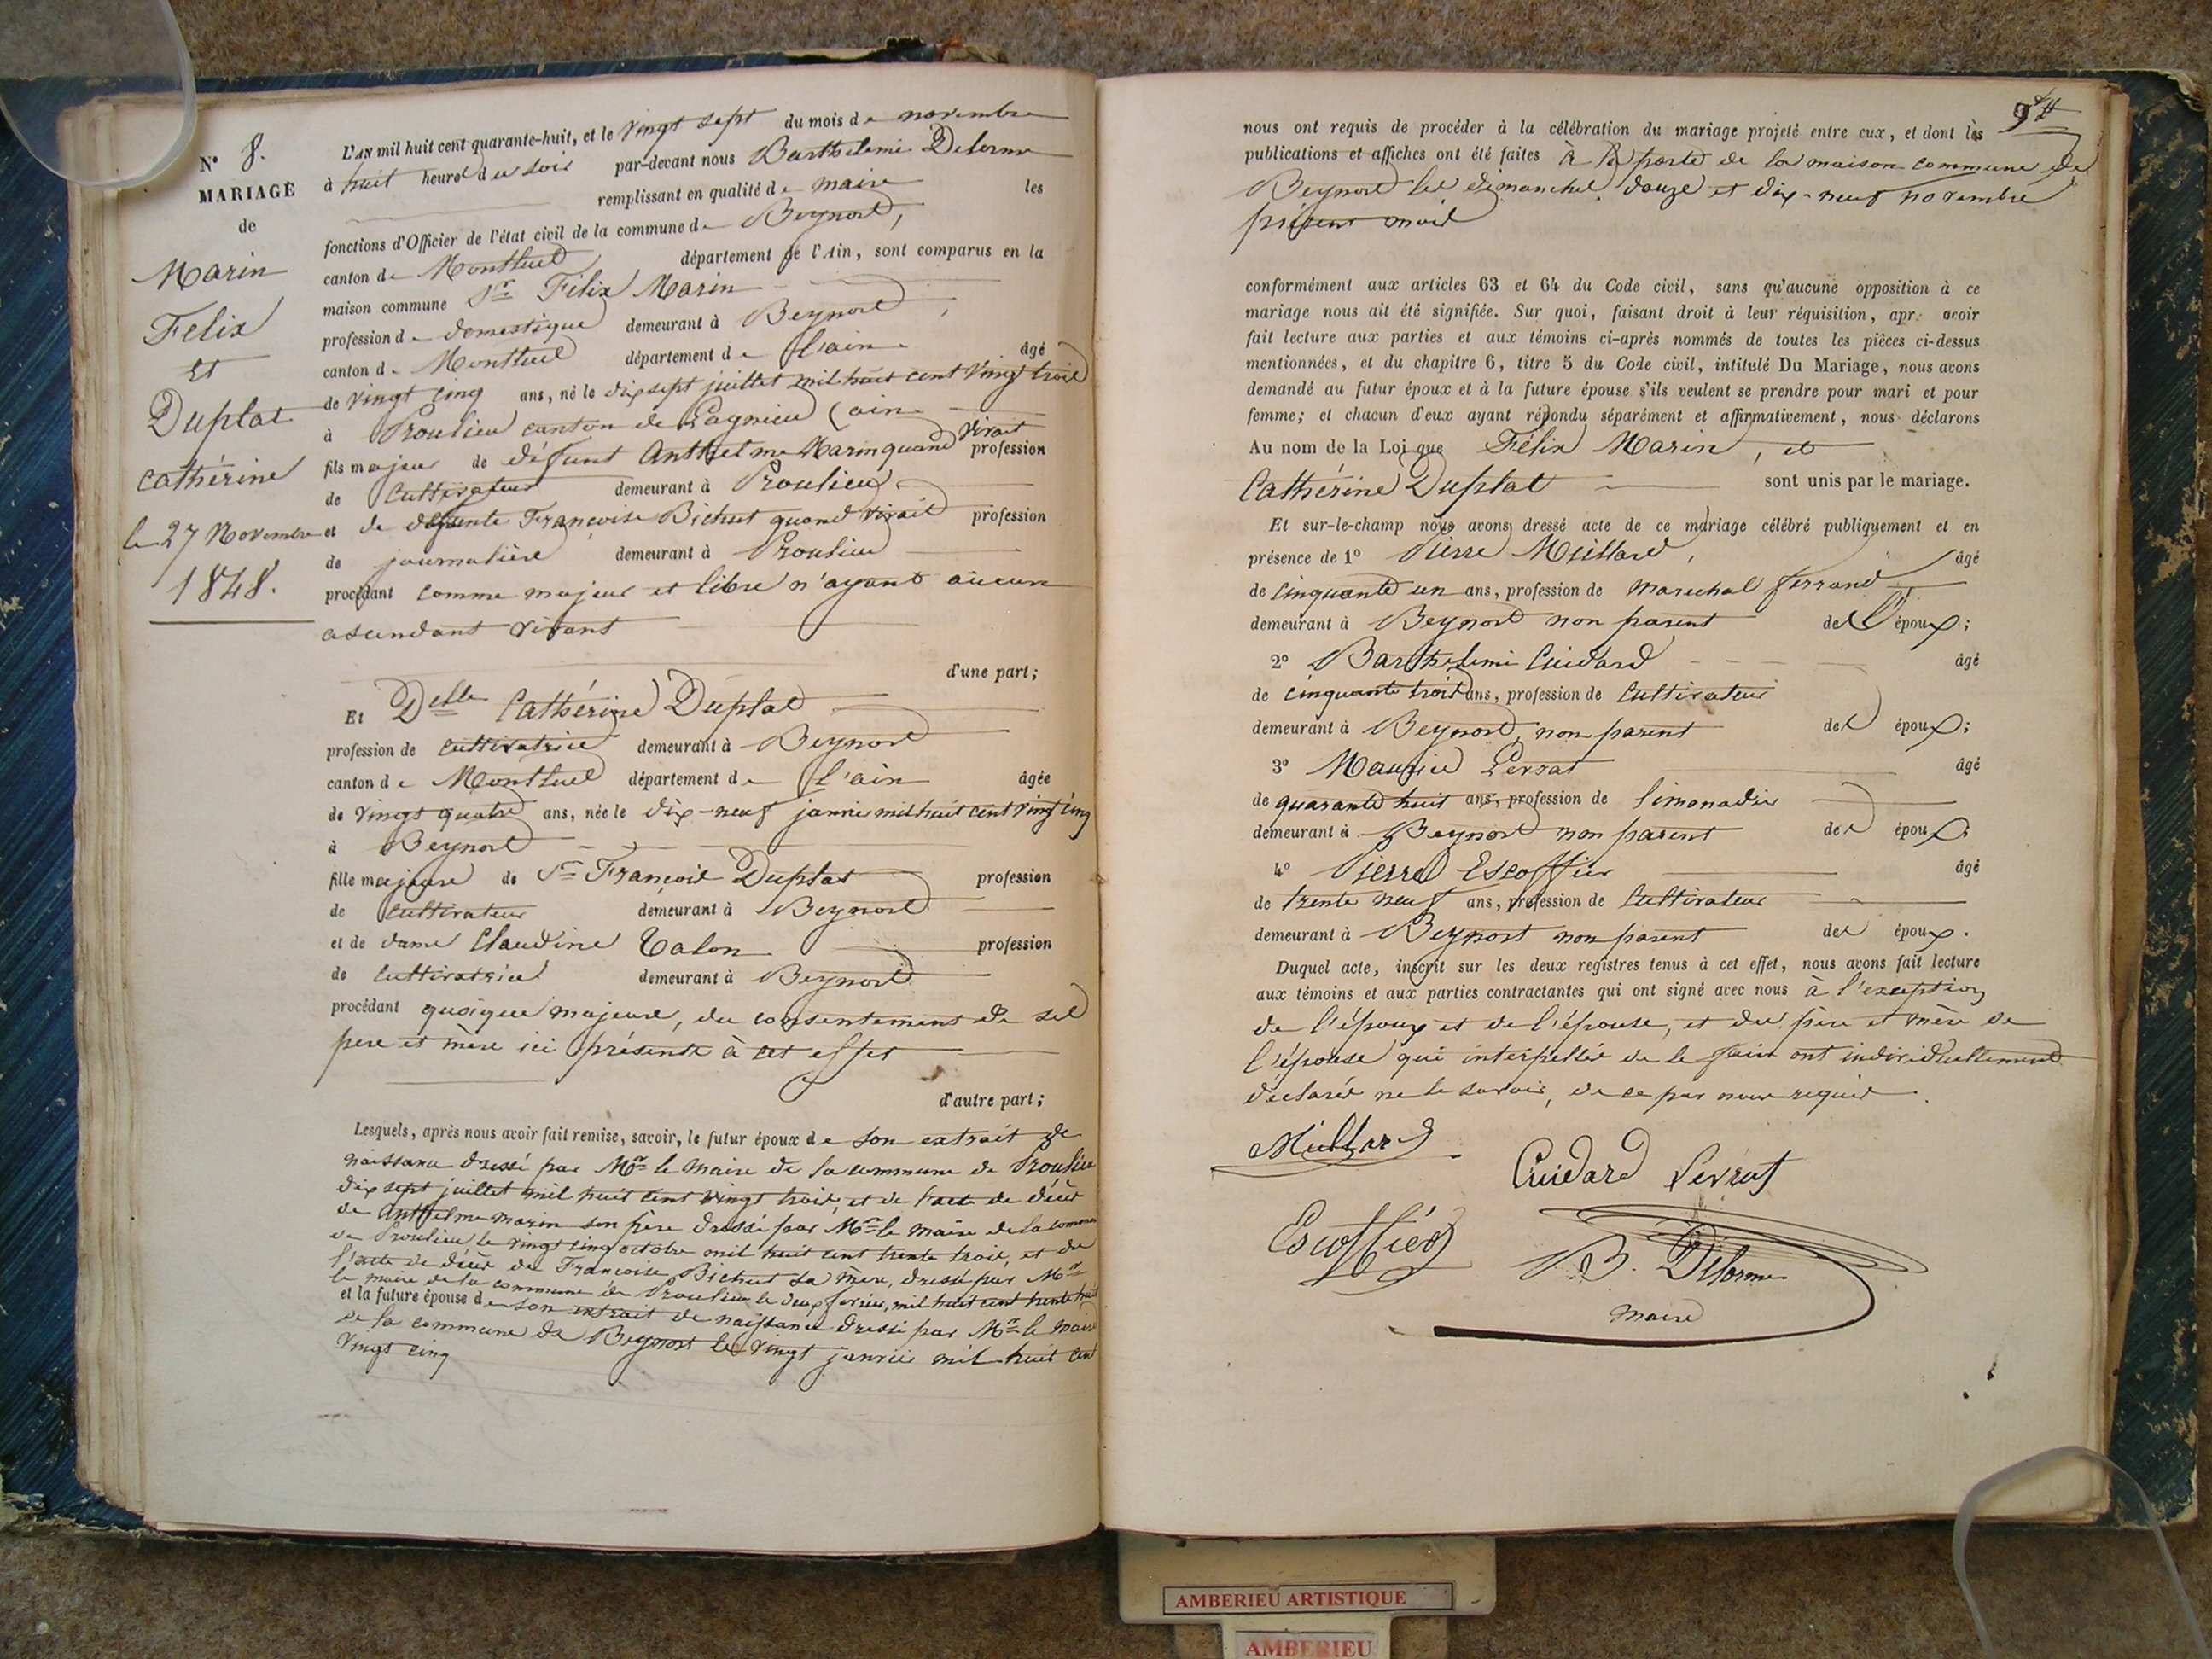 N° 8.
MARIAGE
de
Marin
Felix
et
Duplat
Cathérine
le 27 Novembre
1848.
L'AN mil huit cent quarante-huit, et le vingt sept du mois de novembre
à huit heures du soir par-devant nous Barthelemi Delorme
remplissant en qualité de maire les
fonctions d'Officier de l'état civil de la commune de Beynost,
canton de Montluel département de l'Ain, sont comparus en la
maison commune Sr Félix Marin
profession de domestique demeurant à Beynost,
canton de Montluel département de l'ain âgé
de vingt cinq ans, né le dix sept juillet mil huit cent vingt trois
à Proulieu canton de Lagnieu (ain
fils majeur de défunt Anthelme Marin quand vivait profession
de Cultivateur demeurant à Proulieu,
et de défunte Françoise Bichut quand vivait profession
de journalière demeurant à Proulieu
procédant comme majeur et libre n'ayant aucun
ascendant vivant
d'une part;
Et Delle Cathérine Duplat
profession de cultivatrice demeurant à Beynost
canton de Montluel département de l'ain âgée
de vingt quatre ans, née le dix-neuf janvier mil huit cent vingt cinq
à Beynost
fille majeure de Sr François Duplat profession
de Cultivateur demeurant à Beynost
et de dame Claudine Talon profession
de Cultivatrice demeurant à Beynost
procédant quoique majeure, du consentement de ses
pere et mère ici présents à cet effet
d'autre part;
Lesquels, après nous avoir fait remise, savoir, le futur époux de son extrait de
naissance dressé par Mr le Maire de la commune de Proulieu
dix sept juillet mil huit cent vingt trois, et de l'acte de décès
de Anthelme marin son père dressé par Mr le maire de la commune
de Proulieu le vingt cinq octobre mil huit cent trente trois, et de
l'acte de décès de Françoise Bichut sa mère, dressé par Mr
le maire de la commune de Proulieu le deux fevrier, mil huit cent trente huit
et la future épouse de son extrait de naissance dressé par Mr le Maire
de la commune de Beynost le vingt janvier mil huit cent
vingt cinq
nous ont requis de procéder à la célébration du mariage projeté entre eux, et dont les
publications et affiches ont été faites à la porte de la maison commune de
Beynost les dimanches douze et dix-neuf novembre
présent mois
conformément aux articles 63 et 64 du Code civil, sans qu'aucune opposition à ce
mariage nous ait été signifiée. Sur quoi, faisant droit à leur réquisition, apr. avoir
fait lecture aux parties et aux témoins ci-après nommés de toutes les pièces ci-dessus
mentionnées, et du chapitre 6, titre 5 du Code civil, intitulé Du Mariage, nous avons
demandé au futur époux et à la future épouse s'ils veulent se prendre pour mari et pour
femme; et chacun d'eux ayant répondu séparément et affirmativement, nous déclarons
Au nom de la Loi que Félix Marin, et
Cathérine Duplat sont unis par le mariage.
Et sur-le-champ nous avons dressé acte de ce mariage célébré publiquement et en
présence de 1° Pierre Meillard, âgé
de cinquante un ans, profession de marechal ferrand
demeurant à Beynost non parent de l'époux;
2° Barthelemi Cuidard âgé
de cinquante trois ans, profession de Cultivateur
demeurant à Beynost, non parent des époux;
3° Maurice Persat âgé
de quarante huit ans, profession de limonadier
demeurant à Beynost non parent des époux;
4° Pierre Escoffier âgé
de trente neuf ans, profession de Cultivateur
demeurant à Beynost non parent des époux.
Duquel acte, inscrit sur les deux registres tenus à cet effet, nous avons fait lecture
aux témoins et aux parties contractantes qui ont signé avec nous à l'exception
de l'époux et de l'épouse, et du père et mère de
l'épouse qui interpellés de le faire ont individuellement
déclarés ne le savoir, de ce par nous requis.
Cuidard
Escoffier
B. Delorme
Maire
AMBERIEU ARTISTIQUE
AMBERIEU